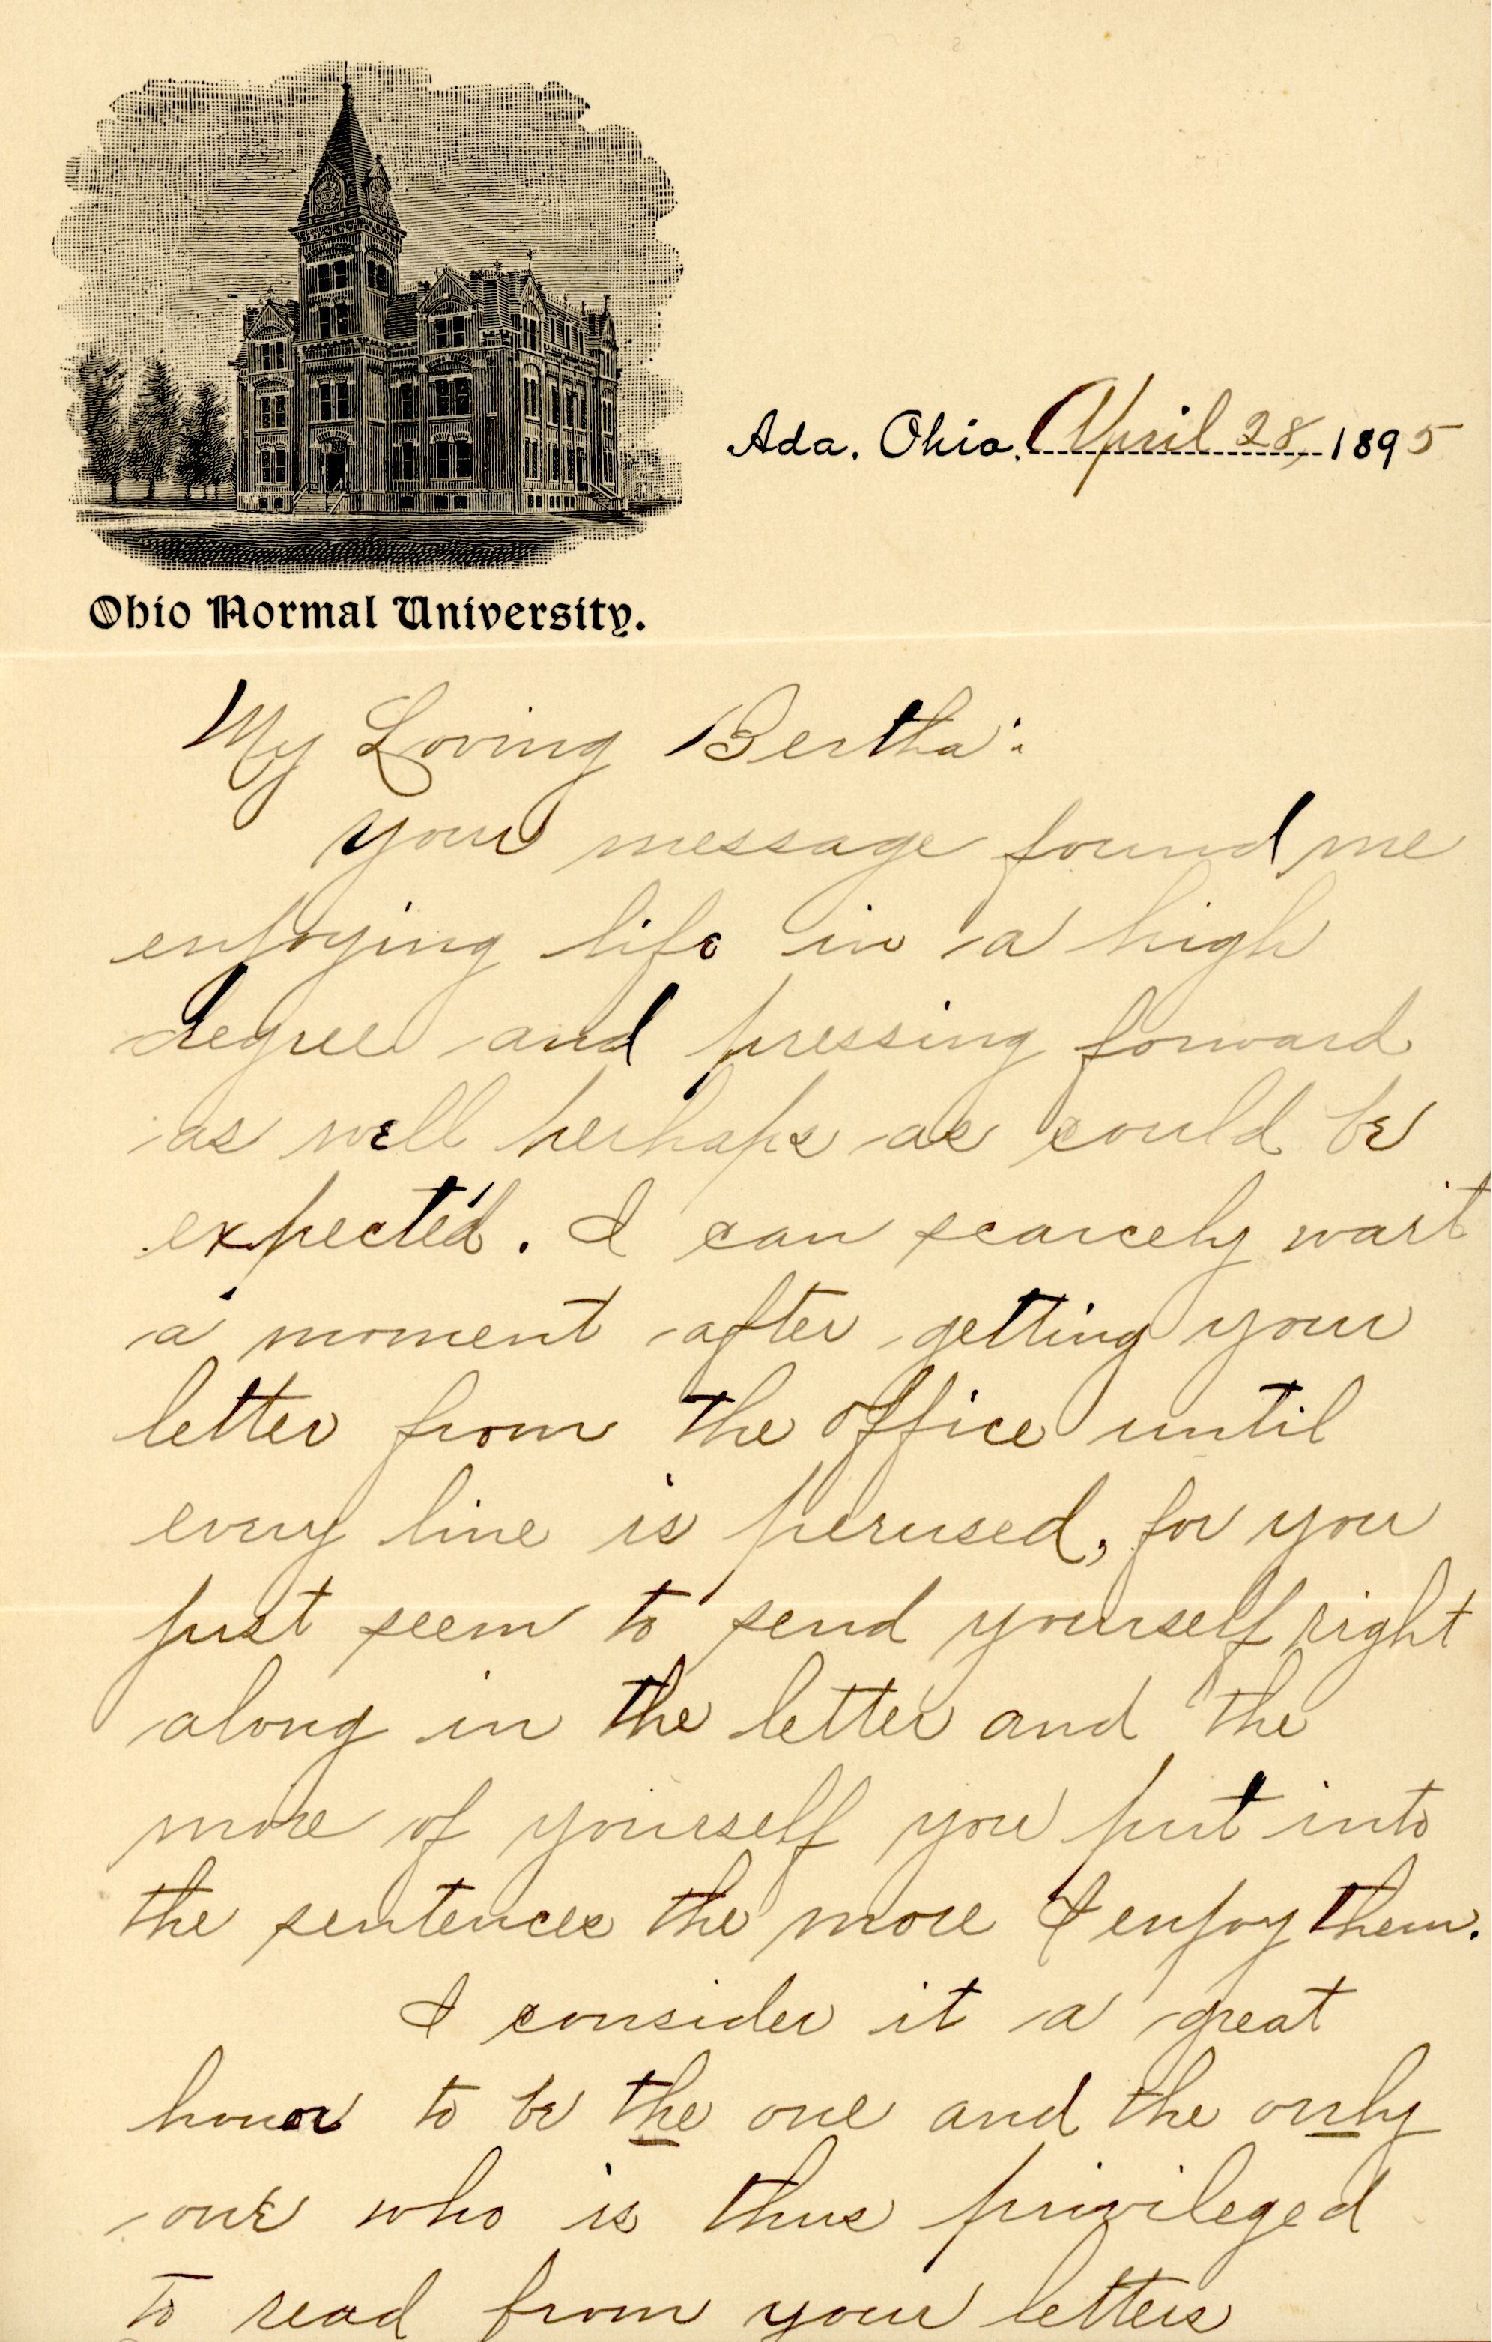 Ada, Ohio, April 28, 1895
Ohio Normal University.
My Loving Bertha:
Your message found me
enjoying life in a high
degree and pressing forward
as well perhaps as could be
expected. I can scarcely wait
a moment after getting your
letter from the office until
every line is perused, for you
just seem to send yourself right
along in the letter and the
more of yourself you put into
the sentences the more I enjoy them.
I consider it a great
honor to be the one and the only
one who is thus privileged
to read from your letters